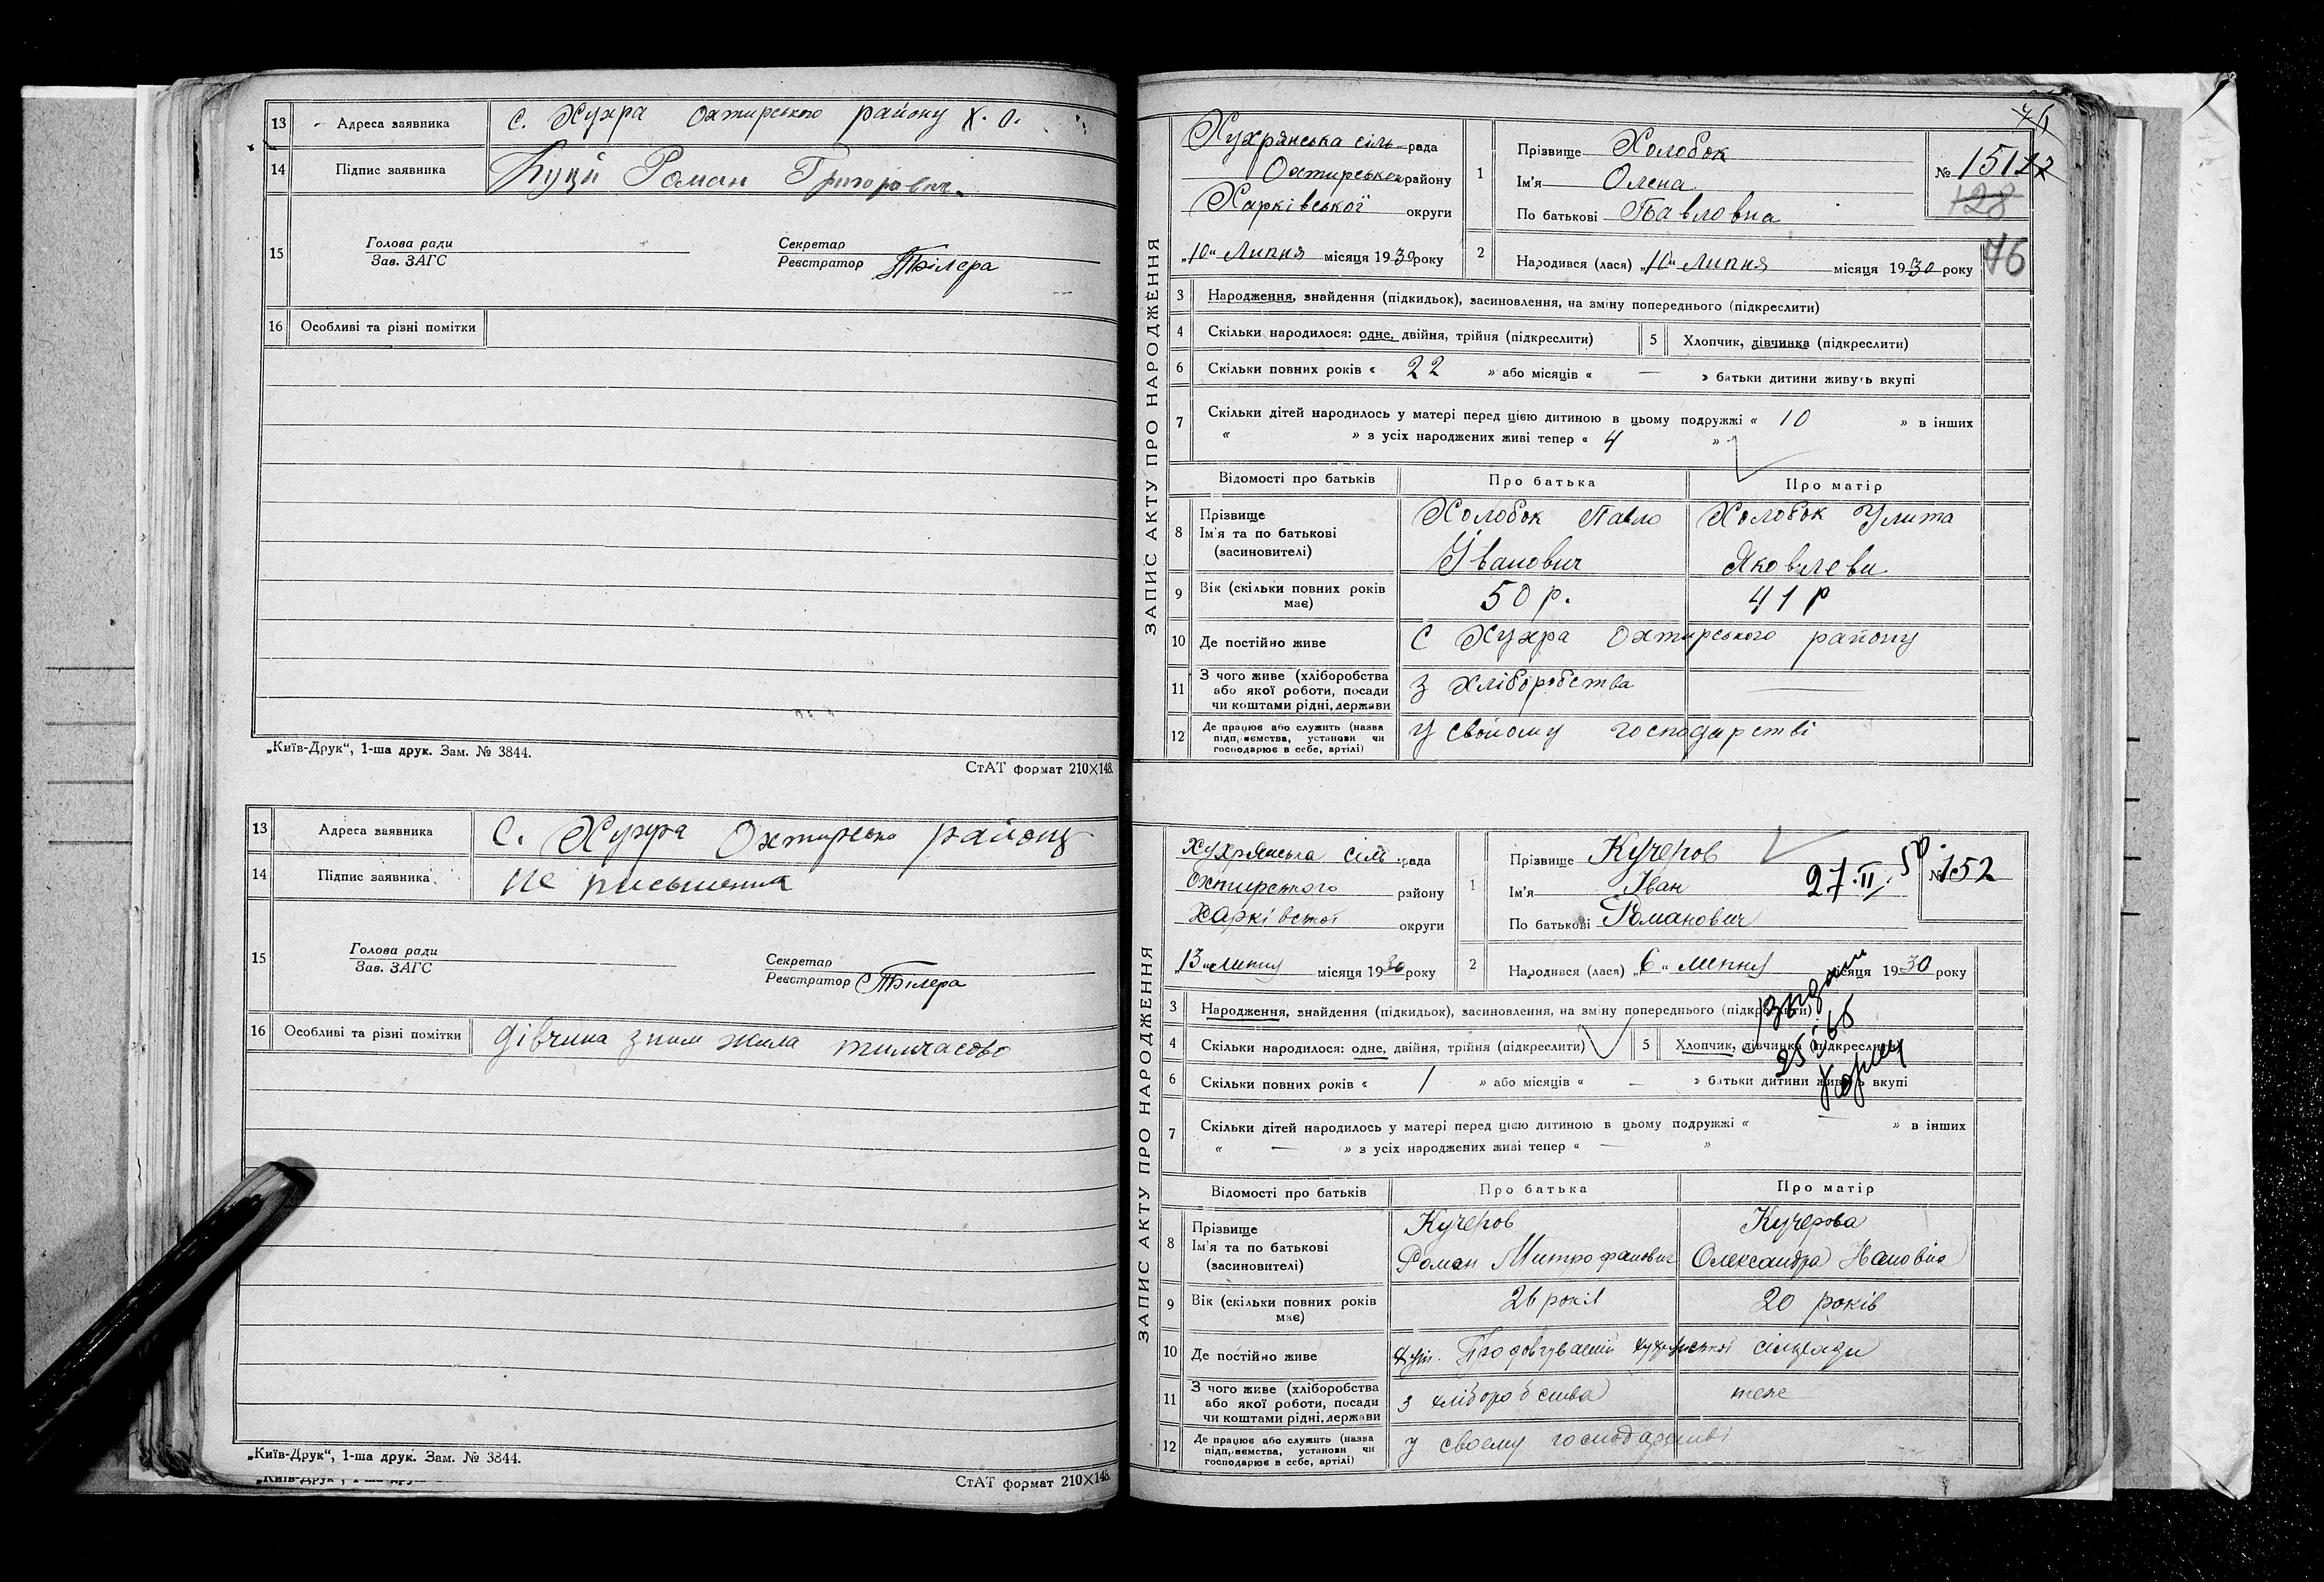 13 Адреса заявника С. Хухра Охтирського району Х. О.
14 Підпис заявника Куций Роман Григорович.
15 Голова ради
Зав. ЗАГС
Секретар
Реєстратор
16 Особливі та різні помітки
„Київ-Друк“, 1-ша друк. Зам. № 3844.
СтАТ формат 210×148.
13 Адреса заявника С. Хухра Охтирсько району
14 Підпис заявника не письменна
15 Голова ради
Зав. ЗАГС
Секретар
Реєстратор
16 Особливі та різні помітки дівчина з ним жила тимчасово
„Київ-Друк“, 1-ша друк. Зам. № 3844.
СтАТ формат 210×148.
ЗАПИС АКТУ ПРО НАРОДЖЕННЯ
Хухрянська сіль-рада
Охтирської району
Харківської округи
„10“ Липня місяця 1930 року
1 Прізвище Холобок
Ім'я Олена
По батькові Павловна
№ 151
128
76
2 Народився (лася) „10“ Липня місяця 1930 року
3 Народження, знайдення (підкидьок), засиновлення, на зміну попереднього (підкреслити)
4 Скільки народилося: одне, двійня, трійня (підкреслити)
5 Хлопчик, дівчинка (підкреслити)
6 Скільки повних років « 22 » або місяців « — » батьки дитини живуть вкупі
7 Скільки дітей народилось у матері перед цією дитиною в цьому подружжі « 10 » в інших
« » з усіх народжених живі тепер « 4 »
Відомості про батьків Про батька Про матір
8 Прізвище
Ім'я та по батькові
(засиновителі)
Холобок Павло
Іванович
Холобок Улита
Яковлевн
9 Вік (скільки повних років має) 50 р. 41 р
10 Де постійно живе С Хухра Охтирського району
11 З чого живе (хліборобства
або якої роботи, посади
чи коштами рідні, держави
З хліборобства —
12 Де працює або служить (назва
підприємства, установи чи
господарює в себе, артілі)
У свойому господарстві
ЗАПИС АКТУ ПРО НАРОДЖЕННЯ
Хухрянська сіль. рада
Охтирського району
Харківської округи
„13“ липня місяця 1930 року
1 Прізвище Кучеров
Ім'я Іван
По батькові Романович
27.II.50
№ 152
2 Народився (лася) „6“ липня місяця 1930 року
3 Народження, знайдення (підкидьок), засиновлення, на зміну попереднього (підкреслити)
4 Скільки народилося: одне, двійня, трійня (підкреслити)
5 Хлопчик, дівчинка (підкреслити)
6 Скільки повних років « 1 » або місяців « — » батьки дитини живуть вкупі
7 Скільки дітей народилось у матері перед цією дитиною в цьому подружжі « — » в інших
« — » з усіх народжених живі тепер « — »
Відомості про батьків Про батька Про матір
8 Прізвище
Ім'я та по батькові
(засиновителі)
Кучеров
Роман Митрофанович
Кучерова
Олександра
9 Вік (скільки повних років має) 26 років 20 років
10 Де постійно живе хут. сільради
11 З чого живе (хліборобства
або якої роботи, посади
чи коштами рідні, держави
з хліборобства теже
12 Де працює або служить (назва
підприємства, установи чи
господарює в себе, артілі)
у своєму господарстві